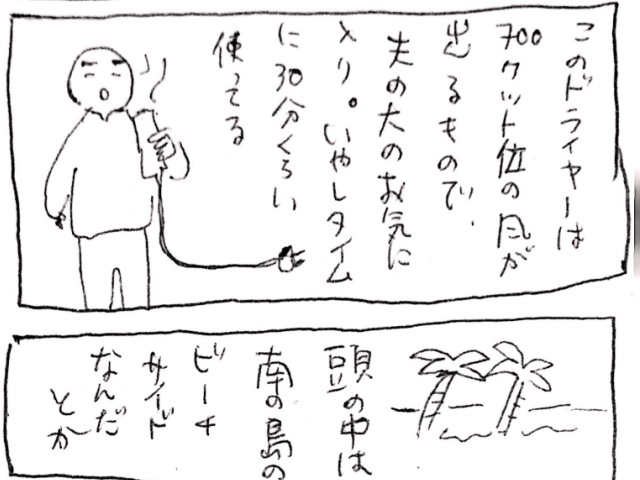 このドライヤーは
700ワット位の風が
出るもので、
夫の大のお気に
入り。いやしタイム
に30分くらい
使ってる
頭の中は
南の島の
ビーチ
サイド
なんだ
とか